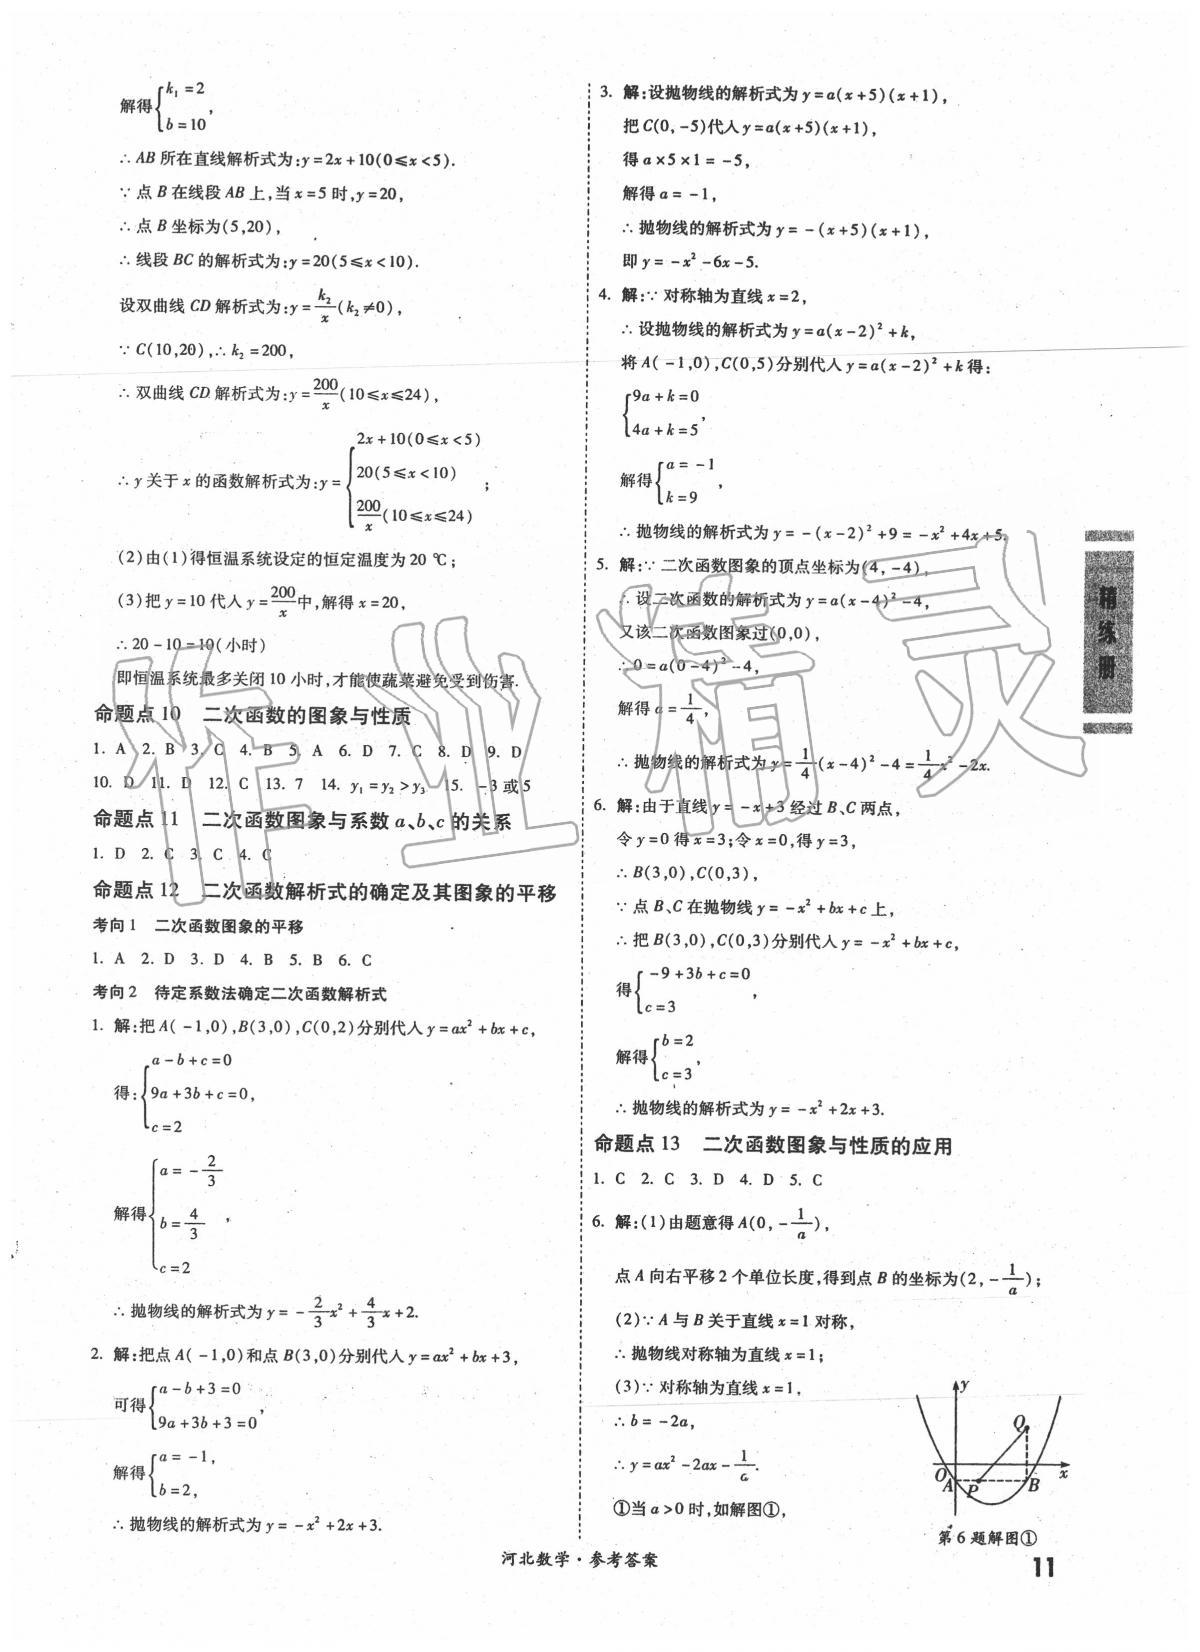 解得{k₁=2
b=10,
∴AB所在直线解析式为:y=2x+10(0≤x<5).
∵点B在线段AB上,当x=5时,y=20,
∴点B坐标为(5,20),
∴线段BC的解析式为:y=20(5≤x<10).
设双曲线CD解析式为:y=k₂/x(k₂≠0),
∵C(10,20),∴k₂=200,
∴双曲线CD解析式为:y=200/x(10≤x≤24),
∴y关于x的函数解析式为:y={2x+10(0≤x<5)
20(5≤x<10)
200/x(10≤x≤24);
(2)由(1)得恒温系统设定的恒定温度为20 ℃;
(3)把y=10代人y=200/x中,解得x=20,
∴20-10=10(小时)
即恒温系统最多关闭10小时,才能使蔬菜避免受到伤害.
命题点10 二次函数的图象与性质
1. A 2. B 3. C 4. B 5. A 6. D 7. C 8. D 9. D
10. D 11. D 12. C 13. 7 14. y₁=y₂>y₃ 15. -3或5
命题点11 二次函数图象与系数a、b、c的关系
1. D 2. C 3. C 4. C
命题点12 二次函数解析式的确定及其图象的平移
考向1 二次函数图象的平移
1. A 2. D 3. D 4. B 5. B 6. C
考向2 待定系数法确定二次函数解析式
1. 解:把A(-1,0),B(3,0),C(0,2)分别代人y=ax²+bx+c,
得:{a-b+c=0
9a+3b+c=0,
c=2
解得{a=-2/3
b=4/3,
c=2
∴抛物线的解析式为y=-2/3x²+4/3x+2.
2. 解:把点A(-1,0)和点B(3,0)分别代人y=ax²+bx+3,
可得{a-b+3=0
9a+3b+3=0,
解得{a=-1,
b=2,
∴抛物线的解析式为y=-x²+2x+3.
3. 解:设抛物线的解析式为y=a(x+5)(x+1),
把C(0,-5)代人y=a(x+5)(x+1),
得a×5×1=-5,
解得a=-1,
∴抛物线的解析式为y=-(x+5)(x+1),
即y=-x²-6x-5.
4. 解:∵对称轴为直线x=2,
∴设抛物线的解析式为y=a(x-2)²+k,
将A(-1,0),C(0,5)分别代人y=a(x-2)²+k得:
{9a+k=0
4a+k=5,
解得{a=-1
k=9,
∴抛物线的解析式为y=-(x-2)²+9=-x²+4x+5.
5. 解:∵二次函数图象的顶点坐标为(4,-4),
∴设二次函数的解析式为y=a(x-4)²-4,
又该二次函数图象过(0,0),
∴0=a(0-4)²-4,
解得a=1/4,
∴抛物线的解析式为y=1/4(x-4)²-4=1/4x²-2x.
6. 解:由于直线y=-x+3经过B、C两点,
令y=0得x=3;令x=0,得y=3,
∴B(3,0),C(0,3),
∵点B、C在抛物线y=-x²+bx+c上,
∴把B(3,0),C(0,3)分别代人y=-x²+bx+c,
得{-9+3b+c=0
c=3,
解得{b=2
c=3,
∴抛物线的解析式为y=-x²+2x+3.
命题点13 二次函数图象与性质的应用
1. C 2. C 3. D 4. D 5. C
6. 解:(1)由题意得A(0,-1/a),
点A向右平移2个单位长度,得到点B的坐标为(2,-1/a);
(2)∵A与B关于直线x=1对称,
∴抛物线对称轴为直线x=1;
(3)∵对称轴为直线x=1,
∴b=-2a,
∴y=ax²-2ax-1/a.
①当a>0时,如解图①,
y
Q
O
x
A P B
第6题解图①
精练册
河北数学·参考答案
11
作业精灵